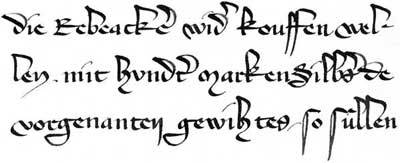 die Rebeacker wider kouffen wel-
len. mit hvndert marken Silbers de
vorgenanten gewihtes. so süllen